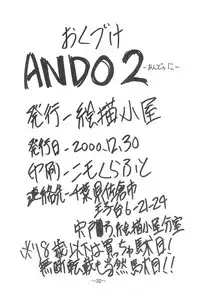 おくづけ
ANDO 2
-あんどぅにー-
発行-絵描小屋
発行日-2000.12.30
印刷-ニモくらふと
連絡先-千葉県佐倉市
王子台6-21-24
絵描小屋分室
※18歳以下は買っちゃ駄目!
無断転載も当然駄目!!
-32-